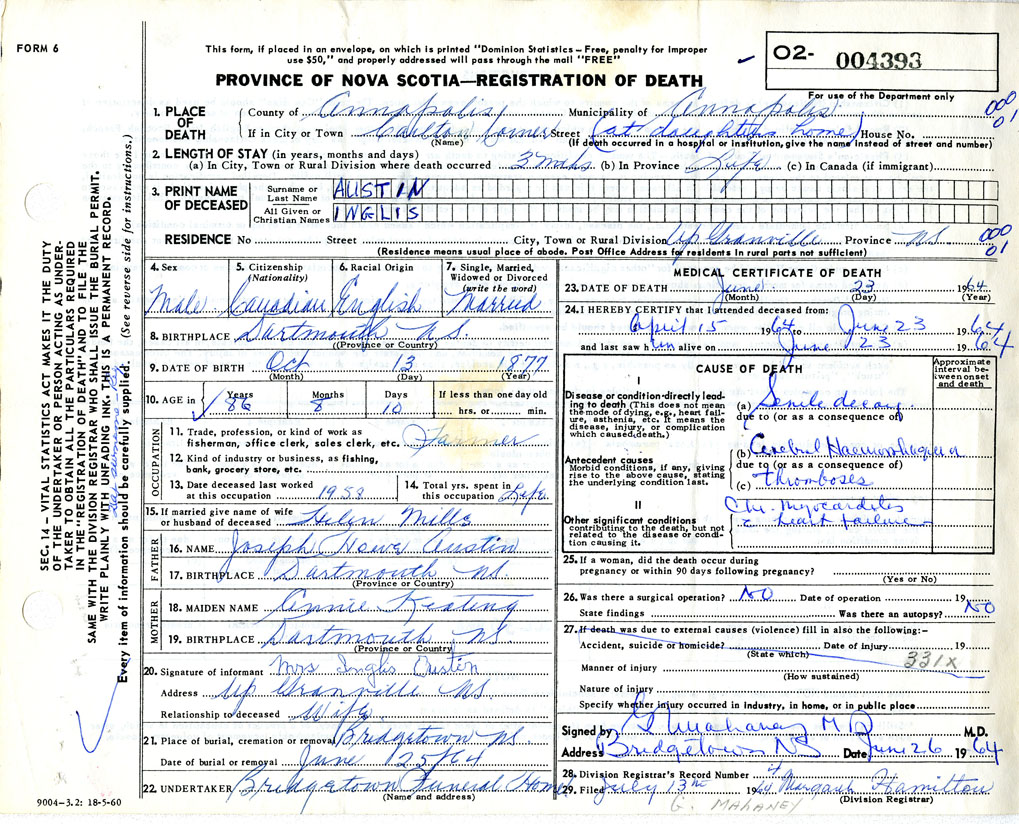 FORM 6
This form, if placed in an envelope, on which is printed "Dominion Statistics – Free, penalty for improper
use $50," and properly addressed will pass through the mail "FREE"
PROVINCE OF NOVA SCOTIA—REGISTRATION OF DEATH
O2- 004393
For use of the Department only
1. PLACE OF DEATH
County of Annapolis Municipality of Annapolis 000 01
If in City or Town Carlton Corner Street (at daughters home) House No.
(Name) (If death occurred in a hospital or institution, give the name instead of street and number)
2. LENGTH OF STAY (in years, months and days)
(a) In City, Town or Rural Division where death occurred 3 mths (b) In Province Life (c) In Canada (if immigrant)
3. PRINT NAME OF DECEASED
Surname or Last Name AUSTIN
All Given or Christian Names INGLIS
RESIDENCE No Street City, Town or Rural Division Up Granville Province NS 000 01
(Residence means usual place of abode. Post Office Address for residents in rural parts not sufficient)
4. Sex Male
5. Citizenship (Nationality) Canadian
6. Racial Origin English
7. Single, Married, Widowed or Divorced (write the word) Married
8. BIRTHPLACE Dartmouth NS
(Province or Country)
9. DATE OF BIRTH Oct 13 1877
(Month) (Day) (Year)
10. AGE in Years 86 Months 8 Days 10 If less than one day old hrs. or min.
OCCUPATION
11. Trade, profession, or kind of work as
fisherman, office clerk, sales clerk, etc. Farmer
12. Kind of industry or business, as fishing,
bank, grocery store, etc.
13. Date deceased last worked at this occupation 1953
14. Total yrs. spent in this occupation Life
15. If married give name of wife
or husband of deceased Helen Mills
FATHER
16. NAME Joseph Howe Austin
17. BIRTHPLACE Dartmouth NS.
(Province or Country)
MOTHER
18. MAIDEN NAME Annie Keating
19. BIRTHPLACE Dartmouth NS
(Province or Country)
20. Signature of informant Mrs Inglis Austin
Address Up Granville NS
Relationship to deceased Wife
21. Place of burial, cremation or removal Bridgetown NS.
Date of burial or removal June 25/64
22. UNDERTAKER Bridgetown Funeral Home
(Name and address)
MEDICAL CERTIFICATE OF DEATH
23. DATE OF DEATH June 23 1964
(Month) (Day) (Year)
24. I HEREBY CERTIFY that I attended deceased from:
April 15 1964 to June 23 1964
and last saw him alive on June 23 1964
CAUSE OF DEATH
Approximate interval between onset and death
I
Disease or condition directly leading to death (This does not mean the mode of dying, e.g., heart failure, asthenia, etc. It means the disease, injury, or complication which caused death.)
(a) Senile decay
due to (or as a consequence of)
Antecedent causes
Morbid conditions, if any, giving rise to the above cause, stating the underlying condition last.
(b) Cerebral
due to (or as a consequence of)
(c) thromboses
II
Other significant conditions
contributing to the death, but not related to the disease or condition causing it.
heart failure
25. If a woman, did the death occur during
pregnancy or within 90 days following pregnancy?
(Yes or No)
26. Was there a surgical operation? NO Date of operation 19
State findings Was there an autopsy? NO
27. If death was due to external causes (violence) fill in also the following:–
Accident, suicide or homicide? Date of injury 19
(State which) 331X
Manner of injury
(How sustained)
Nature of injury
Specify whether injury occurred in industry, in home, or in public place
Signed by Mahaney M.D. M.D.
Address Bridgetown NS Date June 26 1964
28. Division Registrar's Record Number 4
29. Filed July 13th 1964 Margaret Hamilton
(Division Registrar)
G. MAHANEY
SEC. 14 – VITAL STATISTICS ACT MAKES IT THE DUTY
OF THE UNDERTAKER OR PERSON ACTING AS UNDERTAKER TO OBTAIN ALL THE PARTICULARS REQUIRED
IN THE "REGISTRATION OF DEATH" AND TO FILE THE
SAME WITH THE DIVISION REGISTRAR WHO SHALL ISSUE THE BURIAL PERMIT.
WRITE PLAINLY WITH UNFADING INK. THIS IS A PERMANENT RECORD.
Every item of information should be carefully supplied. (See reverse side for instructions.)
9004–3.2: 18-5-60